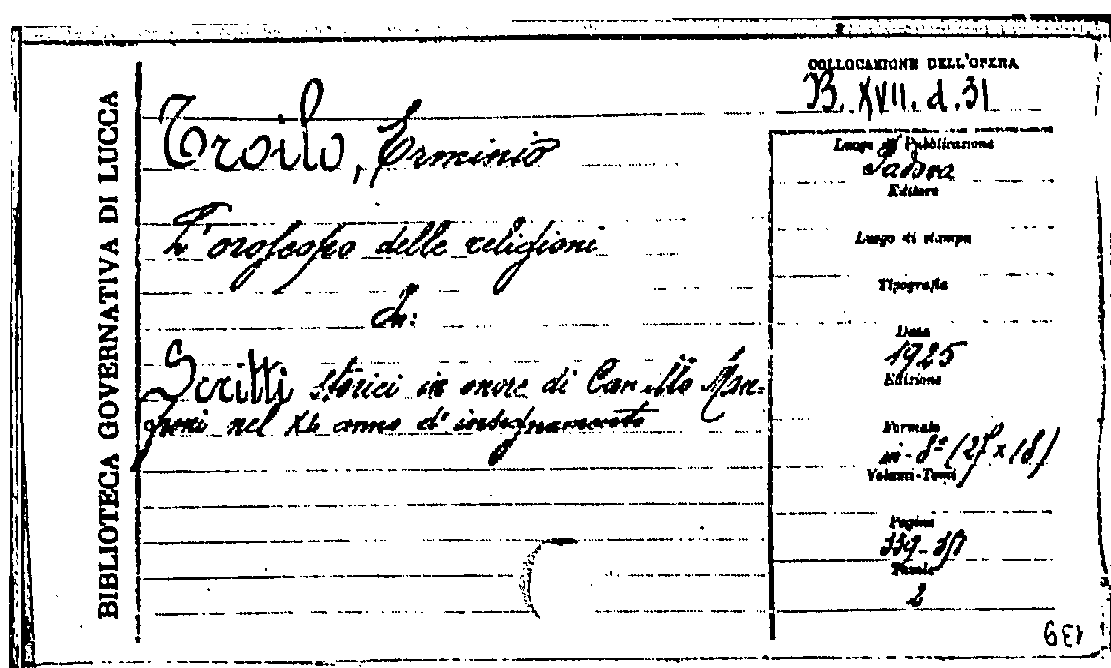 BIBLIOTECA GOVERNATIVA DI LUCCA
COLLOCAZIONE DELL'OPERA
B. XVII. d. 31
Troilo, Erminio
L'oroscopo delle religioni
In:
Scritti storici in onore di Camillo Man-
froni nel XL anno d'insegnamento
Luogo di Pubblicazione
Padova
Editore
Luogo di stampa
Tipografia
Data
1925
Edizione
Formato
in-8º (27 x 18)
Volumi-Tomi
Pagine
339-
Tavole
2
139